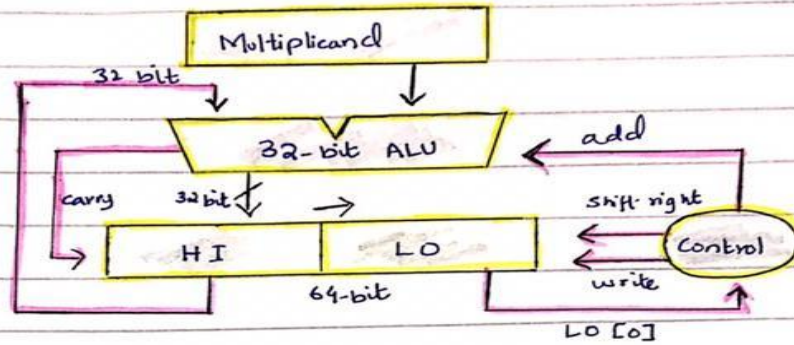 Multiplicand
32 bit
32-bit ALU
add
carry
32bit
shift-right
HI
LO
Control
64-bit
write
LO [0]